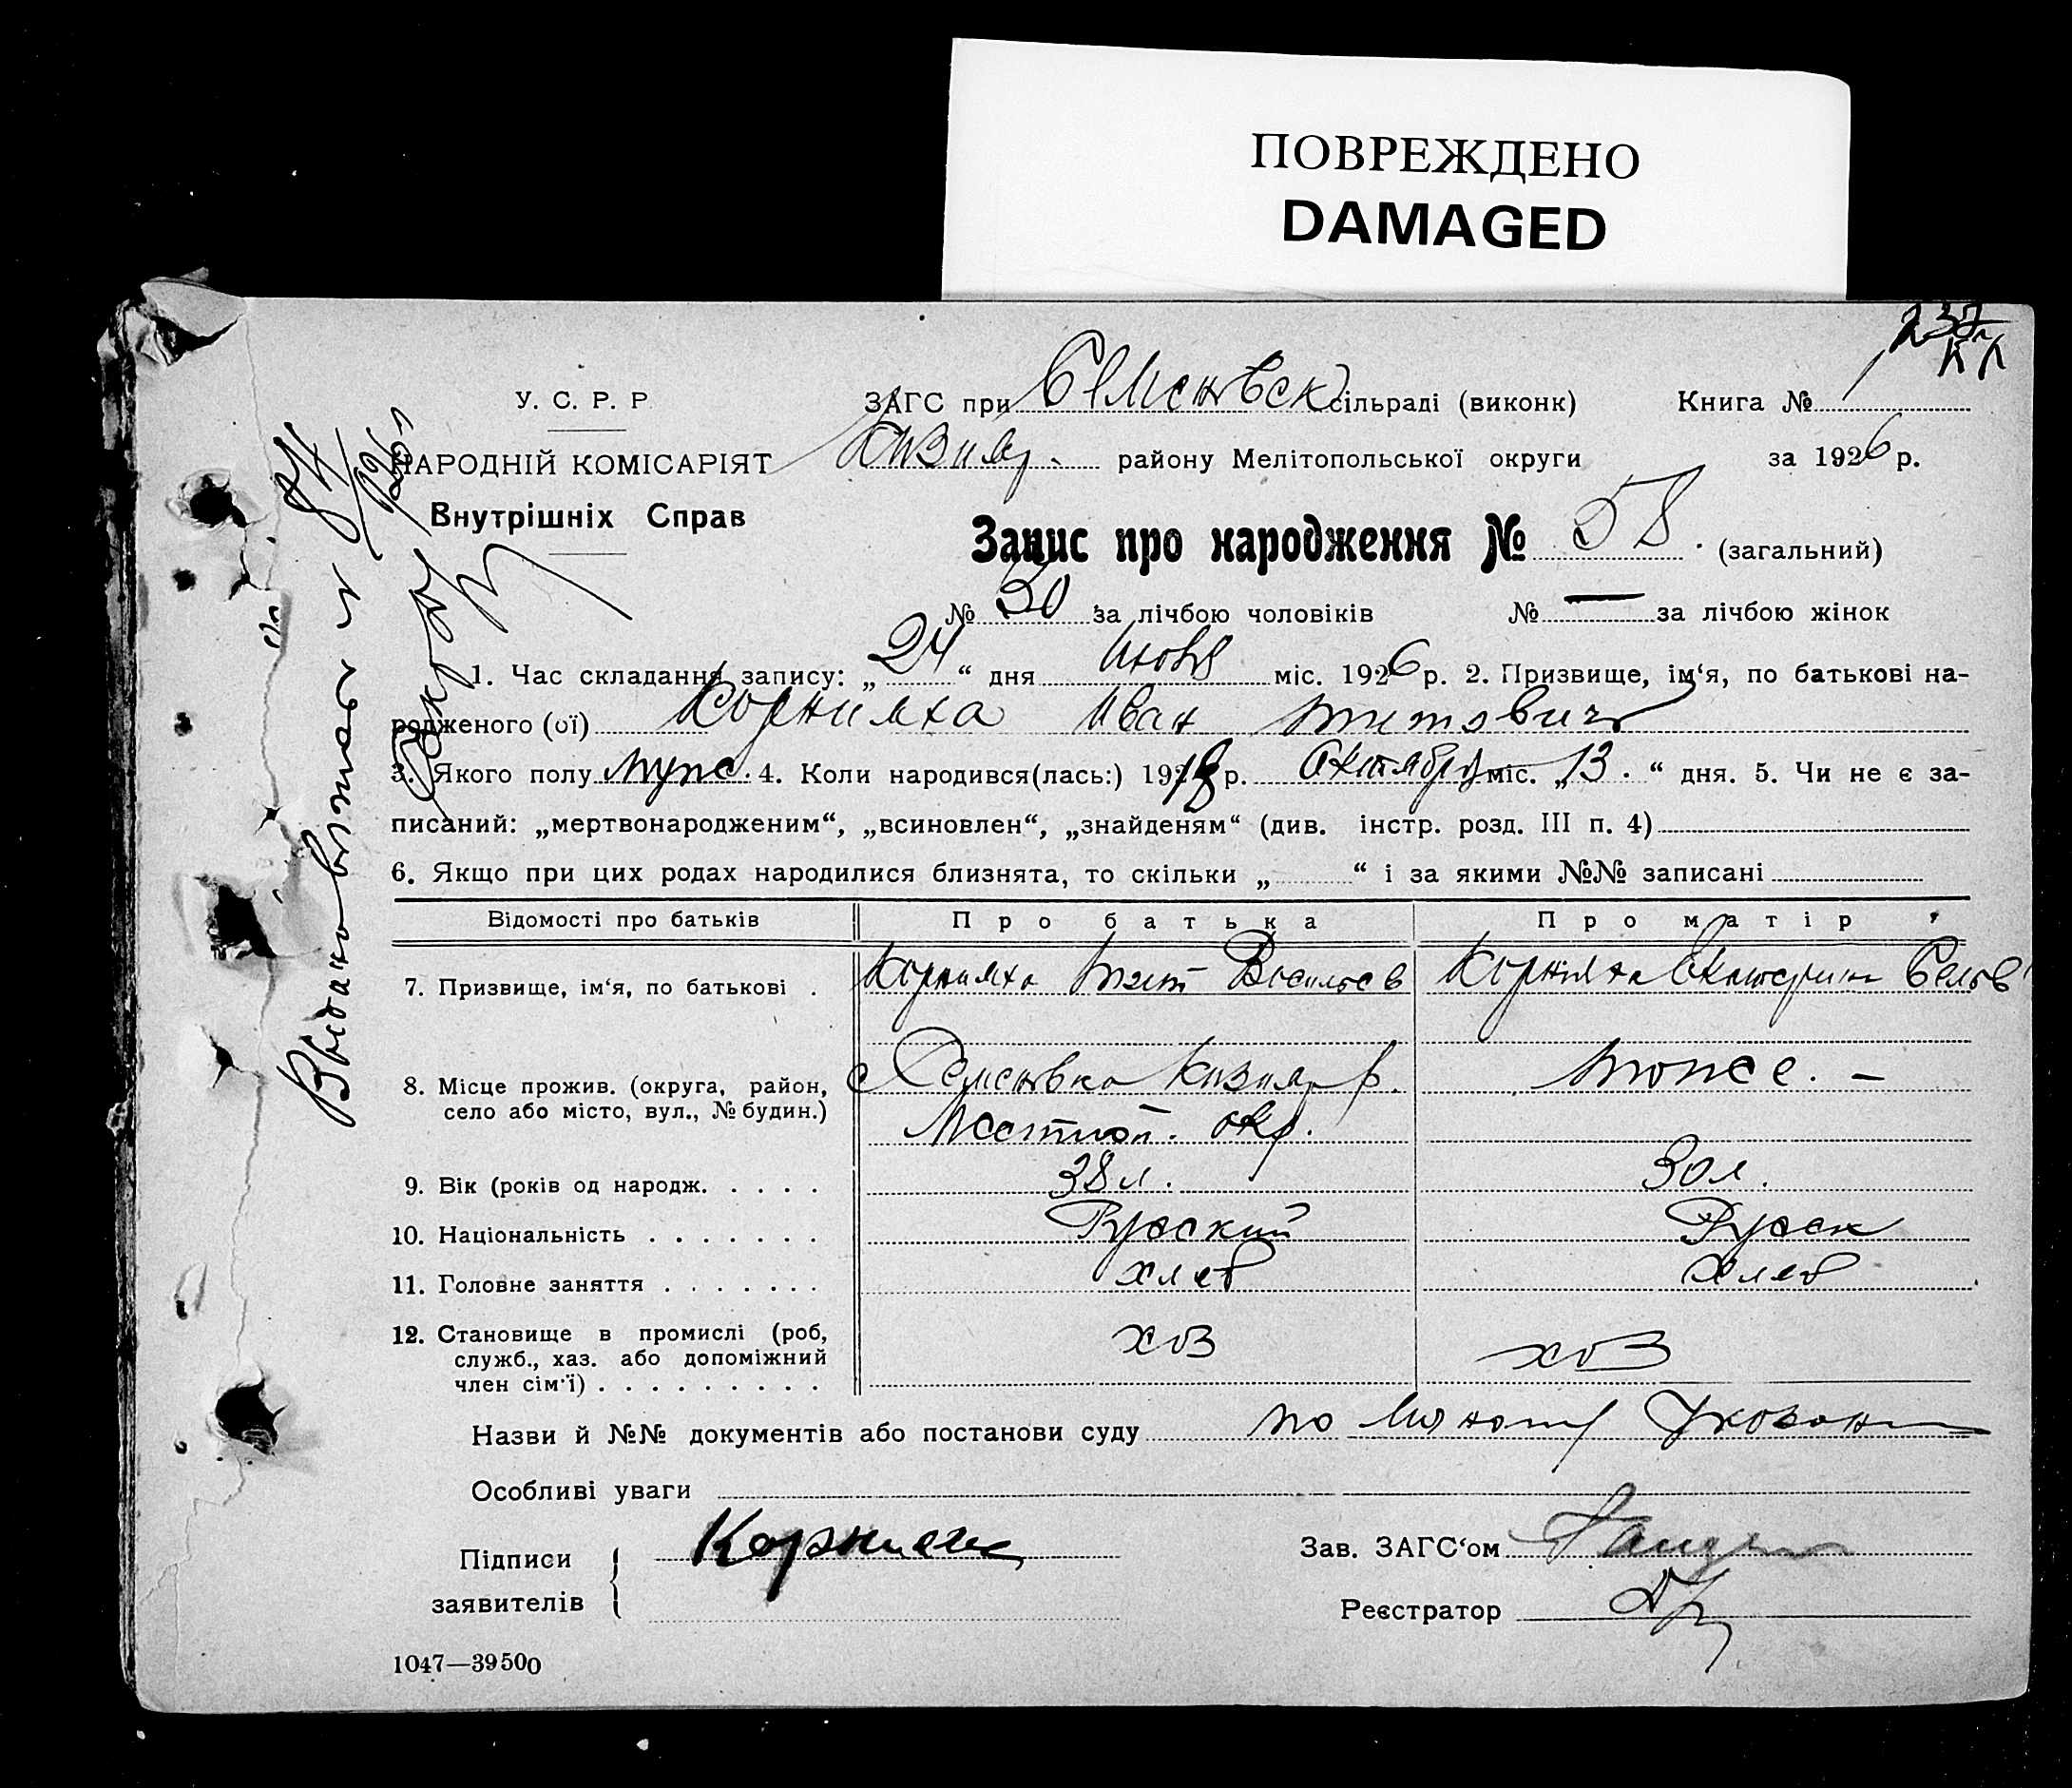 ПОВРЕЖДЕНО
DAMAGED
У. С. Р. Р.
НАРОДНІЙ КОМІСАРІЯТ
Внутрішніх Справ
ЗАГС при Семеновск сільраді (виконк) Книга № 1
Кизияр. району Мелітопольської округи за 1926 р.
Запис про народження № 58. (загальний)
№ 30 за лічбою чоловіків № — за лічбою жінок
1. Час складання запису: „24“ дня Июня міс. 1926 р. 2. Призвище, ім‘я, по батькові на-
родженого (ої) Корнияка Иван Титович
3. Якого полу муж. 4. Коли народився(лась:) 1918 р. Октября міс. „13.“ дня. 5. Чи не є за-
писаний: „мертвонародженим“, „всиновлен“, „знайденям“ (див. інстр. розд. III п. 4)
6. Якщо при цих родах народилися близнята, то скільки „ “ і за якими №№ записані
Відомості про батьків Про батька Про матір
7. Призвище, ім‘я, по батькові . Корнияка Тит Васильев Корнияка Екатерина
8. Місце прожив. (округа, район, с Семеновка Кизияр р. тоже. —
село або місто, вул., № будин.) окр.
9. Вік (років од народж. . . . . 38 л. 30 л.
10. Національність . . . . . . . Русский Русск
11. Головне заняття . . . . . . . хлеб хлеб
12. Становище в промислі (роб, хоз хоз
служб., хаз. або допоміжний
член сім‘ї) . . . . . . . . .
Назви й №№ документів або постанови суду по
Особливі уваги
Підписи
заявителів
Зав. ЗАГС‘ом
Реєстратор
1047—39500